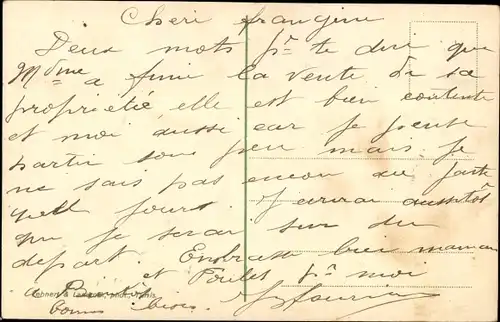 Cheri frangine
Deux mots pr te dire que
Mdme a finie la vente de sa
propriété, elle est bien contente
et moi aussi car je pense
partir sous peu mais je
ne sais pas encore au juste
quel jours. J'ecrirai aussitôt
que je serai sur du
départ. Embrasse bien maman
et Poulet pr moi
a bientôt
bonnes bises
Lehnert & Landrock, phot., Tunis